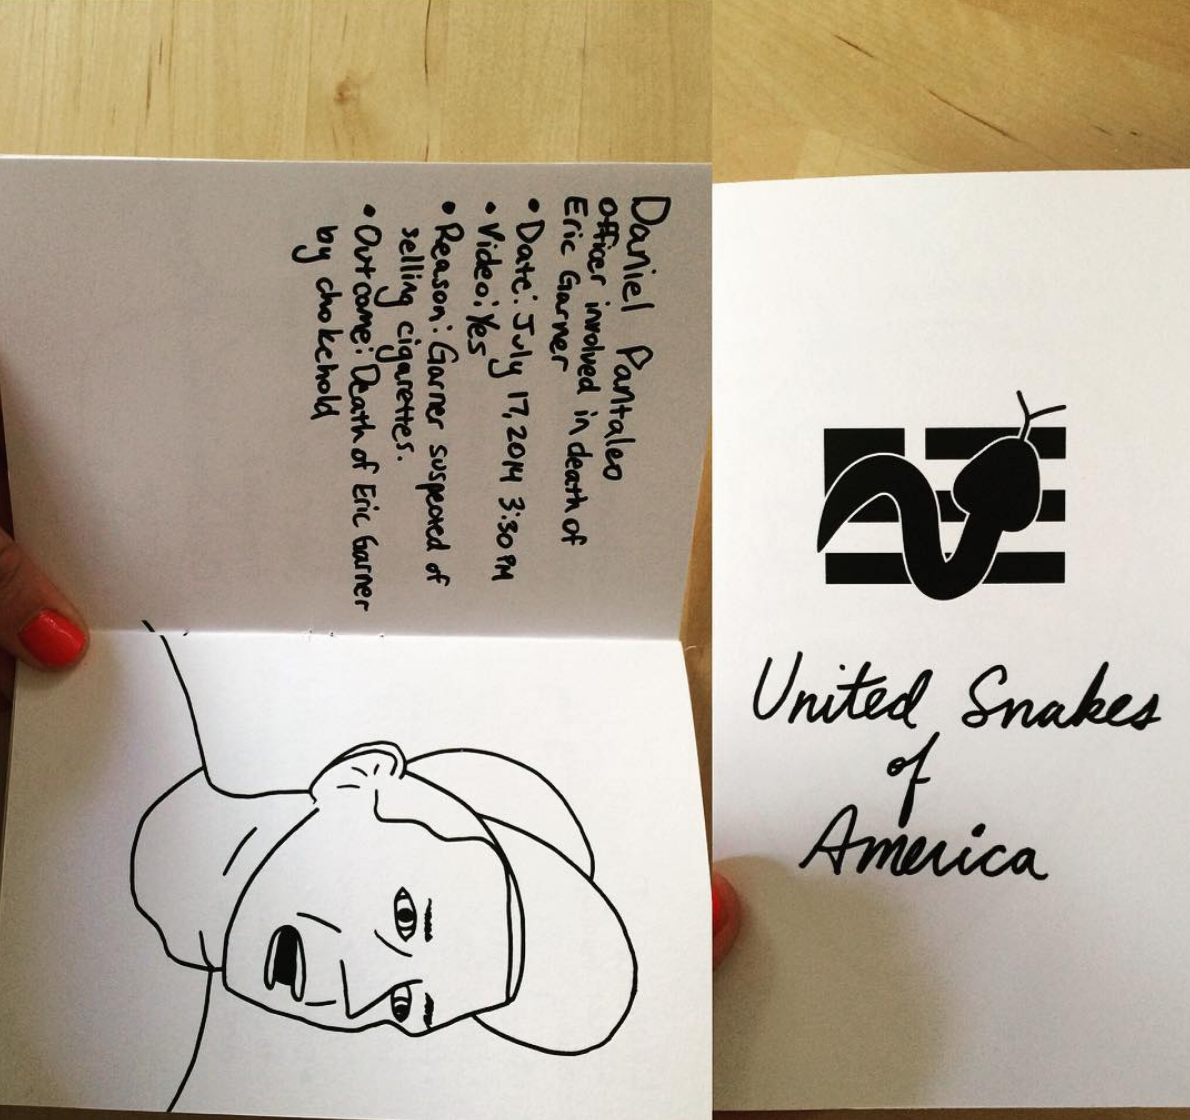 Daniel Pantaleo
officer involved in death of
Eric Garner
• Date: July 17, 2014 3:30 PM
• Video: Yes
• Reason: Garner suspected of
selling cigarettes.
• Outcome: Death of Eric Garner
by chokehold
United Snakes
of
America